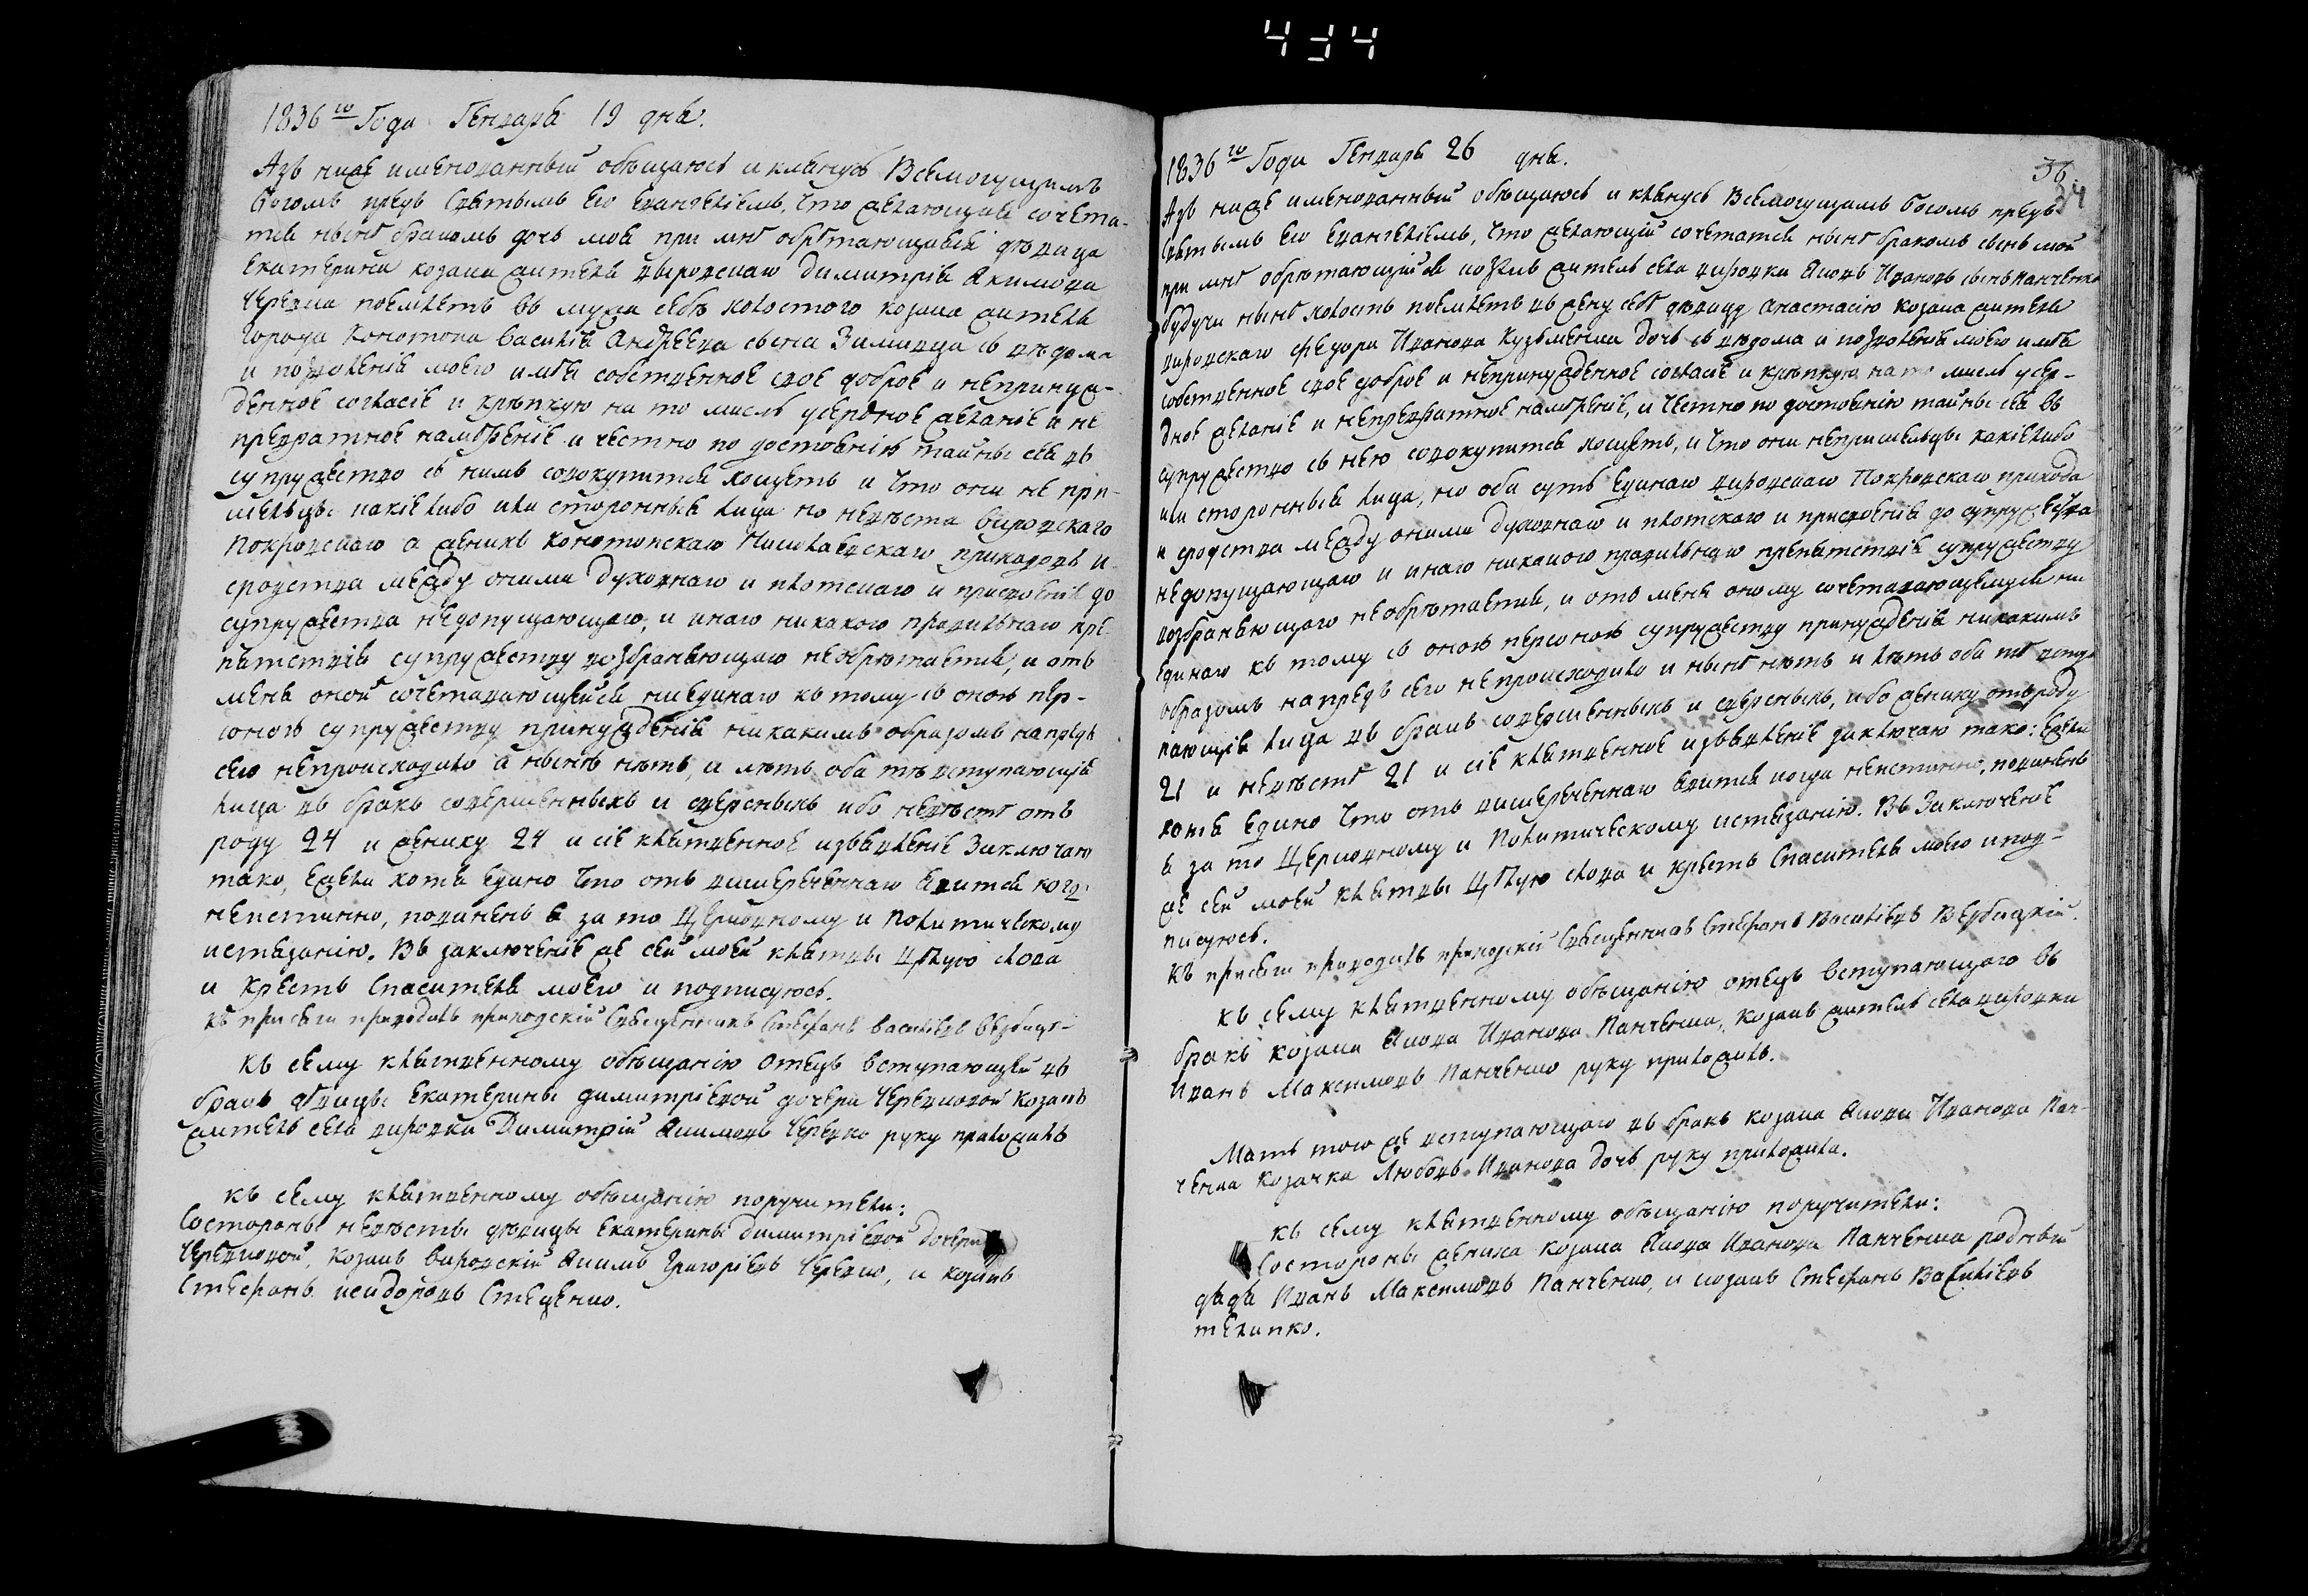 434
1836го Года Генваря 19 дня.
Азъ ниже именованный обѣщаюсь и клянусь Всемогущимъ
Богомъ предъ святымъ его евангеліемъ, что желающая сочета-
тся нынѣ бракомъ дочь моя при мнѣ обрѣтающаяся дѣвица
Екатерина козака жителя вировскаго Димитрія Акимова
Черевка поемлетъ въ мужа себѣ холостого козака жителя
города Конотопа Василія Андреева сына Зимивца съ вѣдома
и позволенія моего имѣя собственное свое доброе и непринуж-
денное согласіе и крѣпкую на то мысль усердное желаніе и не
превратное намѣреніе и честно по достоянію тайны сея въ
супружество съ нимъ совокупится хощетъ и что они не при-
шельцы какіе либо или сторонныя лица но невѣста Вировскаго
Покровскаго а женихъ конотопскаго Николаевскаго приходовъ и
сродства между оними духовнаго и плотскаго и присвоенія до
супружества недопущающаго, и инаго никакого правильнаго пре-
пятствія супружеству возбраняющаго необрѣтается, и отъ
меня оной сочетавающейся ниединаго къ тому съ оною пер-
соною супружеству принужденія никакимъ образомъ напредъ
сего непроисходило а нынѣ нѣтъ, и лѣтъ оба тѣ вступающія
лица въ бракъ совершенныхъ и сверсныхъ ибо невѣстѣ отъ
роду 24 и жениху 24 и сіе клятвенное изъявленіе Заключаю
тако, ежели хотя едино что отъ вишереченнаго явится когда
неистинно, повиненъ я за то Церковному и Политическому
истязанію. Въ заключеніе же сей моей клятвы Цѣлую слова
и Крестъ Спасителя моего и подписуюсь.
Къ присяги приводилъ приходскій Священникъ Стефанъ Васильевъ Вербицк-
Къ сему клятвенному обѣщанію отецъ вступающей въ
бракъ дѣвицы Екатерины димитріевой дочери Черевковой козакъ
житель села вировки Димитрій Акимовъ Черевко руку приложилъ
Къ сему клятвенному обѣщанію поручители:
Состороны невѣсты дѣвицы Екатерины димитріевой дочери
Черевковой, козакъ вировскій Акимъ Григоріевъ Черевко, и козакъ
Стефанъ исидоровъ Стеценко.
36.
34
1836го Года Генваря 26 дня.
Азъ ниже именованный обѣщаюсь и клянусь Всемогущимъ Богомъ предъ
святымъ его евангеліемъ, что желающій сочетатся нынѣ бракомъ сынъ мой
при мнѣ обрѣтающійся козакъ житель села вировки Яковъ Ивановъ сынъ Панченко
будучи нынѣ холостъ поемлетъ въ жену себѣ дѣвицу Анастасію козака жителя
вировскаго Федора Иванова Кузьменка дочь съ вѣдома и позволенія моего имѣя
собственное свое доброе и непринужденное согласіе и крѣпкую на то мысль усер-
дное желаніе и непревратное намѣреніе, и честно по достоянію тайны сея въ
супружество съ нею совокупится хощетъ, и что они непришельцы какіелибо
или сторонныя лица, но оба суть единаго вировскаго Покровскаго прихода
и сродства между оними духовнаго и плотскаго и присвоенія до супружества
недопущающаго и инаго никакого правильнаго препятствія супружеству
возбраняющаго необрѣтается, и отъ меня оному сочетавающемуся ни
единаго къ тому съ оною персоною супружеству принужденія никакимъ
образомъ напредъ сего непроисходило и нынѣ нѣтъ и лѣтъ оба тѣ всту-
пающія лица въ бракъ совершенныхъ и сверсныхъ, ибо жениху отъ роду
21 и невѣстѣ 21 и сіе клятвенное изъявленіе заключаю тако: ежели
хотя едино что отъ вишереченнаго явится когда неистинно, повиненъ
я за то Церковному и Политическому истязанію. Въ Заключеніе
же сей моей клятвы Цѣлую слова и Крестъ Спасителя моего и под-
писуюсь.
Къ присяги приводилъ приходскій Священникъ Стефанъ Васильевъ Вербицкій.
Къ сему клятвенному обѣщанію отецъ вступающаго въ
бракъ козака Якова Иванова Панченка, козакъ житель села вировки
Иванъ Максимовъ Панченко руку приложилъ.
Мать того же вступающаго въ бракъ козака Якова Иванова Пан-
ченка козачка Любовь Иванова дочь руку приложила.
Къ сему клятвенному обѣщанію поручители:
Состороны жениха козака Якова Иванова Панченка родный
дядя Иванъ Максимовъ Панченко, и козакъ Стефанъ Васильевъ
телипко.